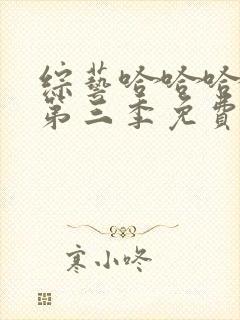 綜藝哈哈哈
第三季免費
寒小咚